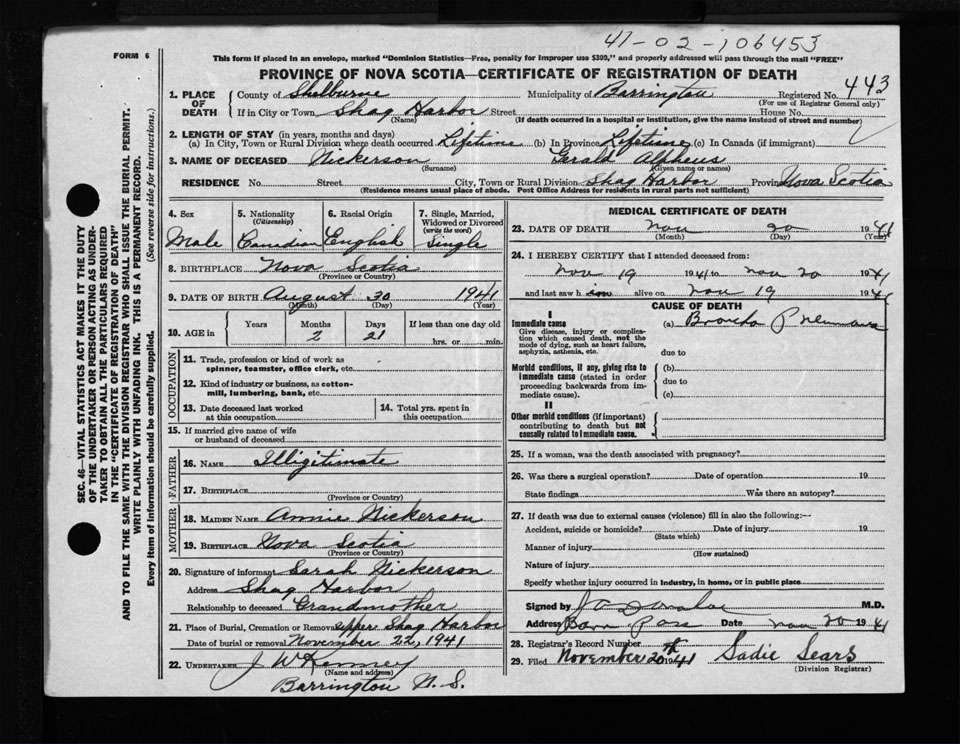 41-02-106453
FORM 6
This form if placed in an envelope, marked "Dominion Statistics—Free, penalty for improper use $300," and properly addressed will pass through the mail "FREE"
PROVINCE OF NOVA SCOTIA—CERTIFICATE OF REGISTRATION OF DEATH
443
1. PLACE OF DEATH County of Shelburne Municipality of Barrington Registered No.
(For use of Registrar General only)
If in City or Town Shag Harbor Street House No.
(Name) (If death occurred in a hospital or institution, give the name instead of street and number)
2. LENGTH OF STAY (in years, months and days)
(a) In City, Town or Rural Division where death occurred Lifetime (b) In Province Lifetime (c) In Canada (if immigrant)
3. NAME OF DECEASED Nickerson Gerald Alpheus
(Surname) (Given name or names)
RESIDENCE No. Street City, Town or Rural Division Shag Harbor Province Nova Scotia
(Residence means usual place of abode. Post Office Address for residents in rural parts not sufficient)
4. Sex
Male
5. Nationality
(Citizenship)
Canadian
6. Racial Origin
English
7. Single, Married, Widowed or Divorced
(write the word)
Single
8. BIRTHPLACE Nova Scotia
(Province or Country)
9. DATE OF BIRTH August 30 1941
(Month) (Day) (Year)
10. AGE in Years Months Days If less than one day old
2 21 hrs. or min.
OCCUPATION
11. Trade, profession or kind of work as
spinner, teamster, office clerk, etc.
12. Kind of industry or business, as cotton-
mill, lumbering, bank, etc.
13. Date deceased last worked
at this occupation
14. Total yrs. spent in
this occupation
15. If married give name of wife
or husband of deceased
FATHER
16. NAME Illigitimate
17. BIRTHPLACE
(Province or Country)
MOTHER
18. MAIDEN NAME Annie Nickerson
19. BIRTHPLACE Nova Scotia
(Province or Country)
20. Signature of informant Sarah Nickerson
Address Shag Harbor
Relationship to deceased Grandmother
21. Place of Burial, Cremation or Removal Upper Shag Harbor
Date of burial or removal November 22, 1941
22. UNDERTAKER J W Kenney
(Name and address)
Barrington N. S.
MEDICAL CERTIFICATE OF DEATH
23. DATE OF DEATH Nov 20 1941
(Month) (Day) (Year)
24. I HEREBY CERTIFY that I attended deceased from:
Nov 19 1941 to Nov 20 1941
and last saw him alive on Nov 19 1941
CAUSE OF DEATH
I
Immediate cause
Give disease, injury or complica-
tion which caused death, not the
mode of dying, such as heart failure,
asphyxia, asthenia, etc.
(a) Broncho
due to
Morbid conditions, if any, giving rise to
immediate cause (stated in order
proceeding backwards from im-
mediate cause).
(b)
due to
(c)
II
Other morbid conditions (if important)
contributing to death but not
causally related to immediate cause.
25. If a woman, was the death associated with pregnancy?
26. Was there a surgical operation? Date of operation 19
State findings Was there an autopsy?
27. If death was due to external causes (violence) fill in also the following:—
Accident, suicide or homicide? Date of injury 19
(State which)
Manner of injury
(How sustained)
Nature of injury
Specify whether injury occurred in industry, in home, or in public place
Signed by M.D.
Address Barr Pass Date Nov 20 1941
28. Registrar's Record Number
29. Filed November 20th 1941 Sadie Sears
(Division Registrar)
SEC. 46—VITAL STATISTICS ACT MAKES IT THE DUTY
OF THE UNDERTAKER OR PERSON ACTING AS UNDER-
TAKER TO OBTAIN ALL THE PARTICULARS REQUIRED
IN THE "CERTIFICATE OF REGISTRATION OF DEATH"
AND TO FILE THE SAME WITH THE DIVISION REGISTRAR WHO SHALL ISSUE THE BURIAL PERMIT.
WRITE PLAINLY WITH UNFADING INK. THIS IS A PERMANENT RECORD.
Every item of information should be carefully supplied. (See reverse side for instructions.)